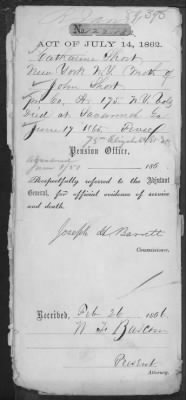 89,393
No.
ACT OF JULY 14, 1862.
Catharine Short
New York N.Y. Moth of
John Short
Co. 175 N.Y. Vols
Died at Savannah Ga
June 17 1865
Pension Office,
186
Respectfully referred to the Adjutant
General, for official evidence of service
and death.
Joseph H Barrett
Commissioner.
Received, Feb 26 1866.
Bascom
Present
Attorney.